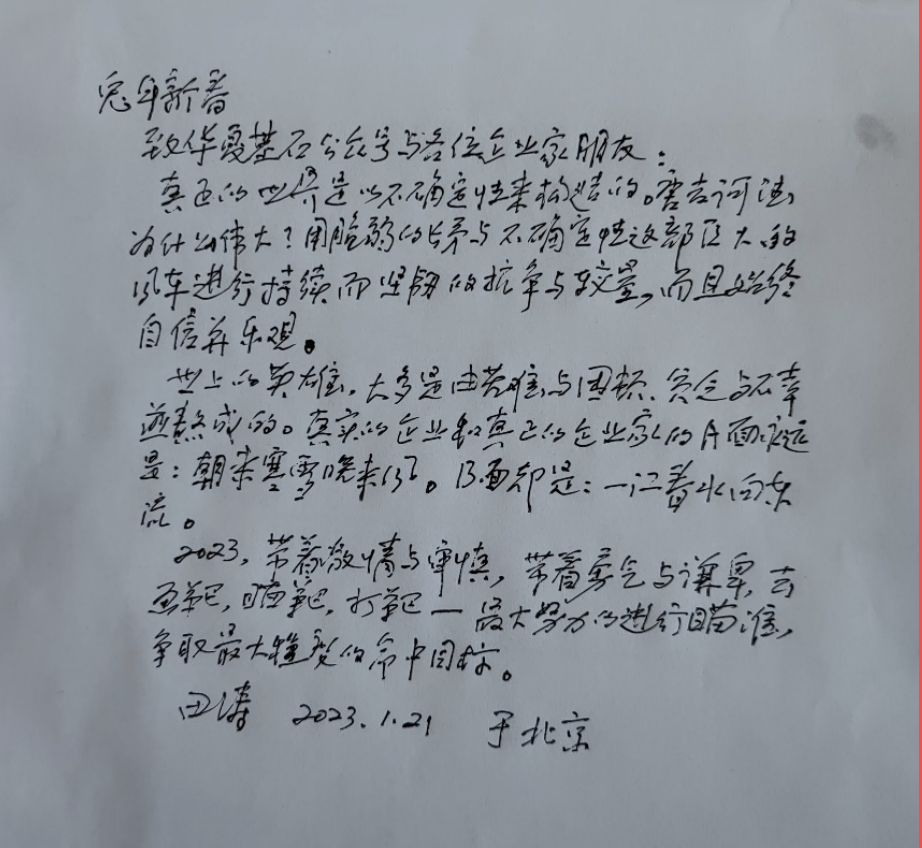 兔年新春
致华夏基石公众号与各位企业家朋友：
真正的世界是以不确定性来构造的。唐吉诃德
为什么伟大？用脆弱的长矛与不确定性这部巨大的
风车进行持续而坚韧的抗争与较量，而且始终
自信并乐观。
世上的英雄，大多是由苦难与困顿、贫乏与不幸
煎熬成的。真实的企业和真正的企业家的A面永远
是：朝来寒雪晚来风。B面却是：一江春水向东
流。
2023，带着激情与审慎，带着勇气与谦卑，去
画靶，瞄靶，打靶—最大努力的进行瞄准，
争取最大程度的命中目标。
田涛 2023.1.21 于北京